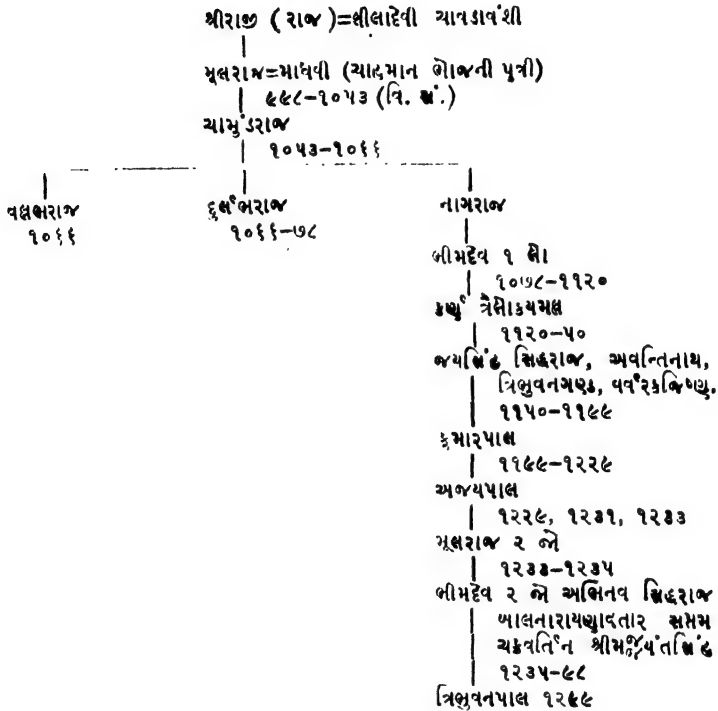 શ્રીરાજી ( રાજ )=લીલાદેવી ચાવડાવંશી
મૂલરાજ=માધવી (ચાહમાન ભોજની પુત્રી)
૯૯૮-૧૦૫૩ (વિ. સં.)
ચામુંડરાજ
૧૦૫૩-૧૦૬૬
વલ્લભરાજ
૧૦૬૬
દુર્લભરાજ
૧૦૬૬-૭૮
નાગરાજ
ભીમદેવ ૧ લો
૧૦૭૮-૧૧૨૦
કર્ણ ત્રૈલોક્યમલ્લ
૧૧૨૦-૫૦
જયસિંહ સિદ્ધરાજ, અવન્તિનાથ,
ત્રિભુવનગણ્ડ, બર્બરકજિષ્ણુ.
૧૧૫૦-૧૧૯૯
કુમારપાલ
૧૧૯૯-૧૨૨૯
અજયપાલ
૧૨૨૯, ૧૨૩૧, ૧૨૩૩
મૂલરાજ ૨ જો
૧૨૩૩-૧૨૩૫
ભીમદેવ ૨ જો અભિનવ સિદ્ધરાજ
બાલનારાયણાવતાર સપ્તમ
ચક્રવર્તિન શ્રીમજ્જયંતસિંહ
૧૨૩૫-૯૮
ત્રિભુવનપાલ ૧૨૯૯